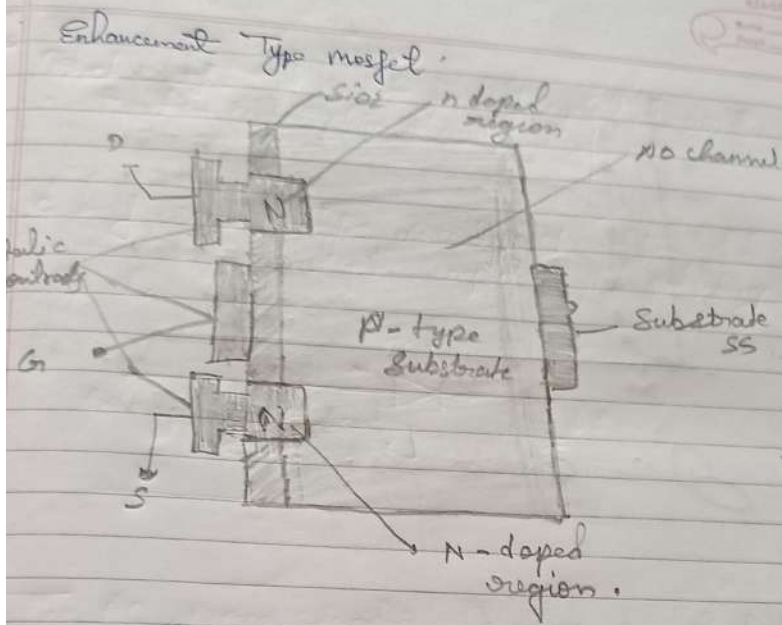 Enhancement Type mosfet.
Sio2
n doped
region
D
No channel
G
type
Substrate
Substrate
SS
N
N
S
N-doped
region.